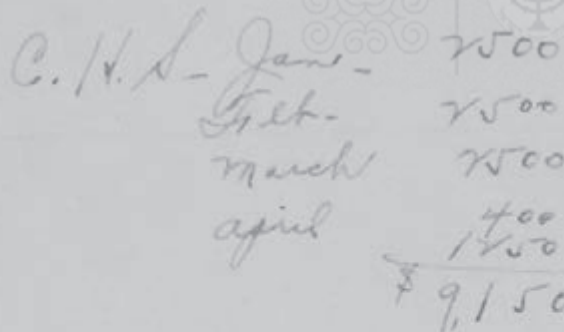 C. H. S - Jan. - 2500
Feb. - 2500
March 2500
april 400
1250
$ 9,150